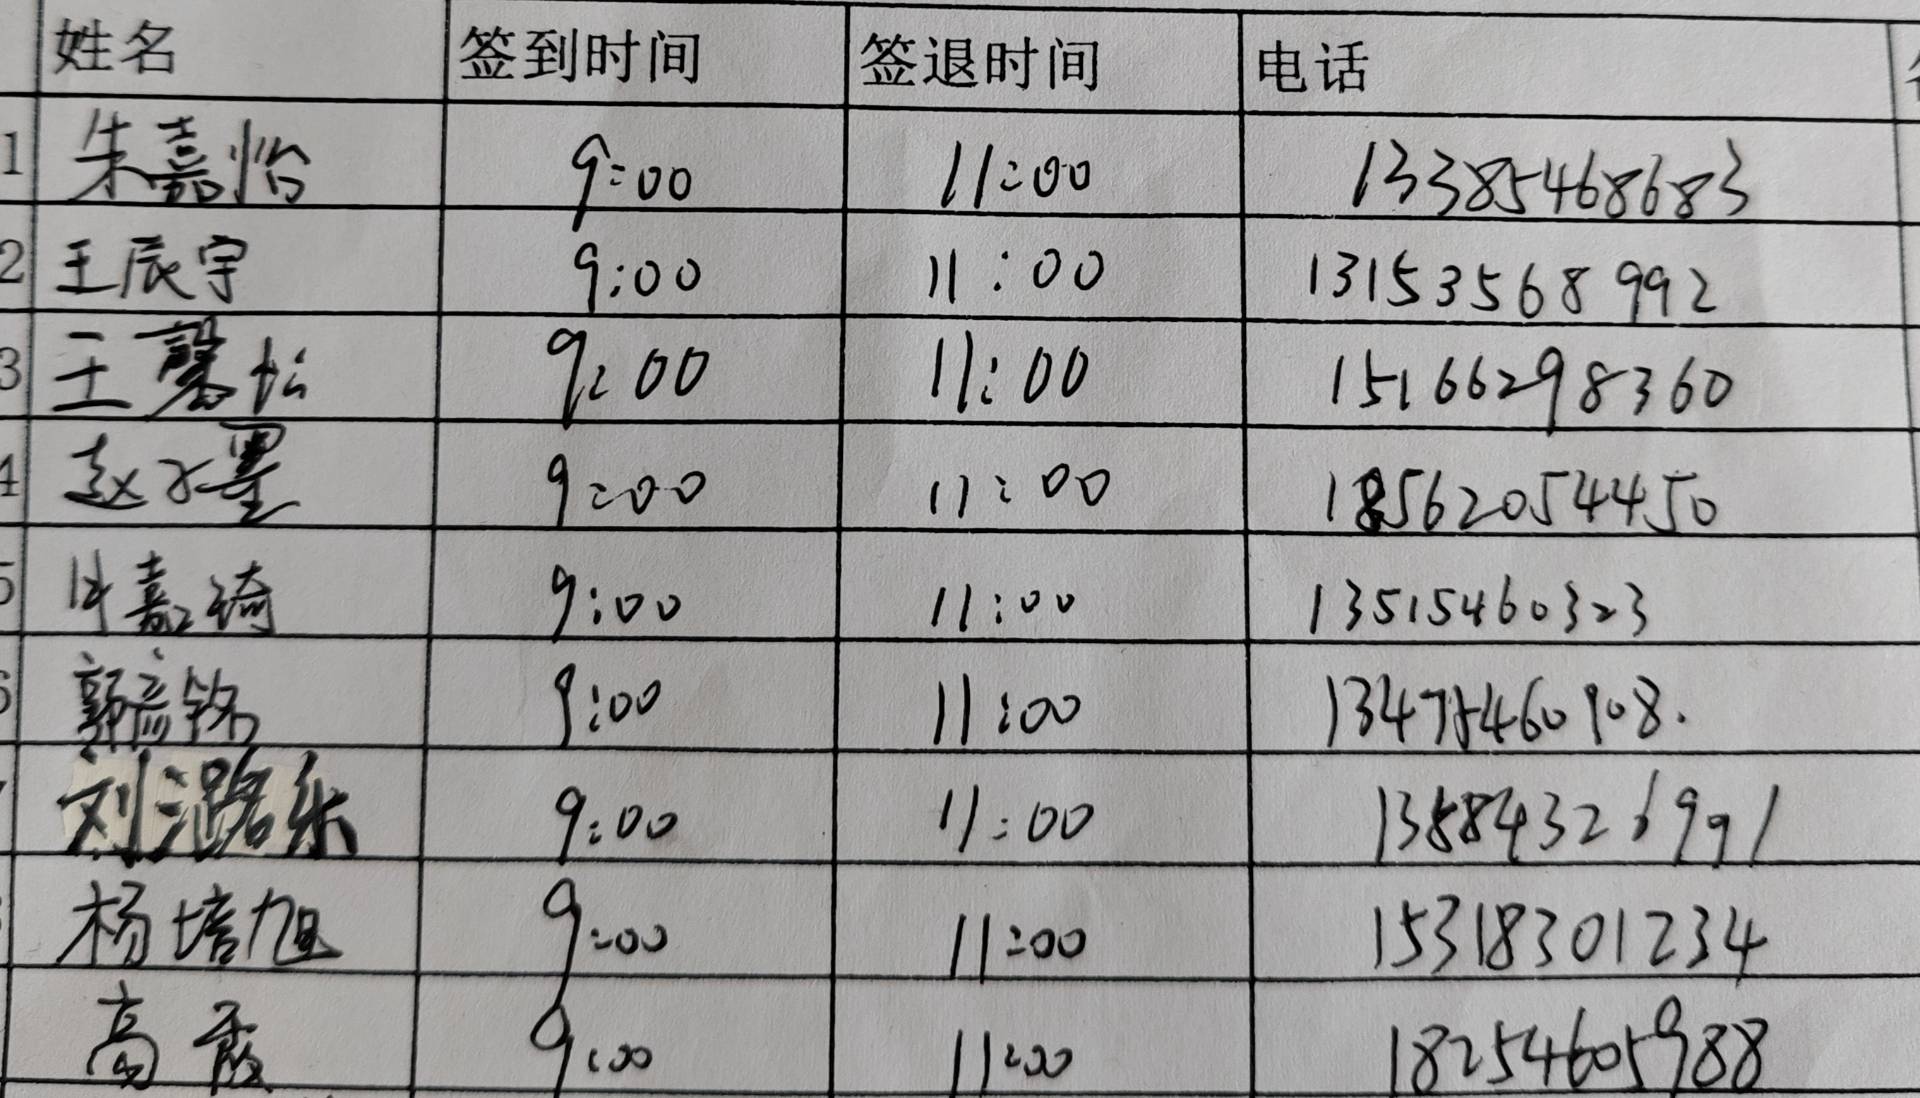 姓名 签到时间 签退时间 电话
1 朱嘉怡 9:00 11:00 13385468683
2 王辰宇 9:00 11:00 13153568992
3 王馨怡 9:00 11:00 15166298360
4 赵子墨 9:00 11:00 18562054450
5 嘉琦 9:00 11:00 13515460323
6 郭彦铭 9:00 11:00 13475460908.
刘潞乐 9:00 11:00 13884326991
杨培旭 9:00 11:00 15318301234
高霞 9:00 11:00 18254605988